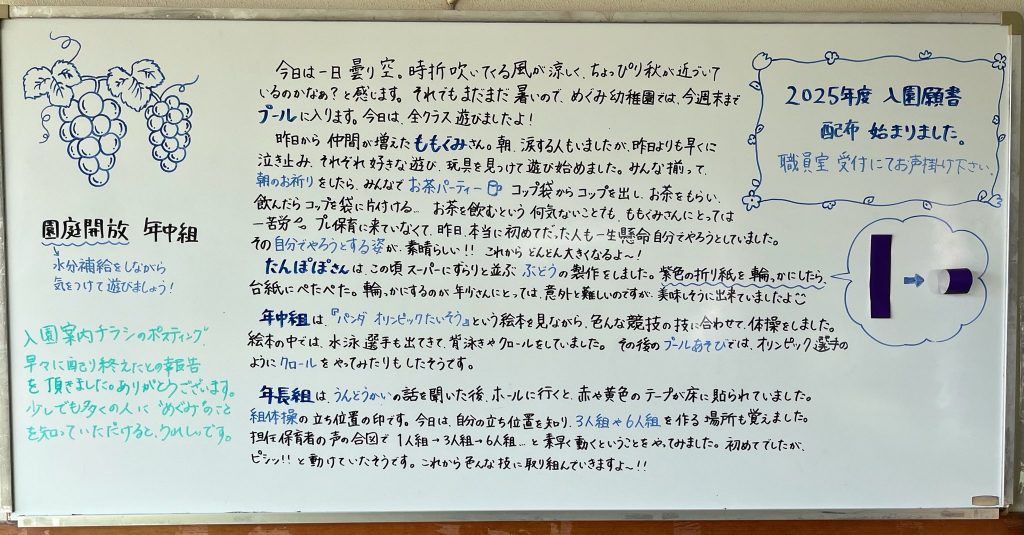 今日は一日曇り空。時折吹いてくる風が涼しく、ちょっぴり秋が近づいて
いるのかなぁ？と感じます。それでもまだまだ暑いので、めぐみ幼稚園では、今週末まで
プールに入ります。今日は、全クラス遊びましたよ！
昨日から仲間が増えたももぐみさん。朝、涙する人もいましたが、昨日よりも早くに
泣き止み、それぞれ好きな遊び、玩具を見つけて遊び始めました。みんな揃って、
朝のお祈りをしたら、みんなでお茶パーティー コップ袋からコップを出し、お茶をもらい、
飲んだらコップを袋に片付ける… お茶を飲むという何気ないことも、ももぐみさんにとっては
一苦労。プレ保育に来ていなくて、昨日、本当に初めてだった人も一生懸命自分でやろうとしていました。
その自分でやろうとする姿が、素晴らしい!! これからどんどん大きくなるよ〜！
たんぽぽさんは、この頃スーパーにずらりと並ぶぶどうの製作をしました。紫色の折り紙を輪っかにしたら、
台紙にぺたぺた。輪っかにするのが年少さんにとっては、意外と難しいのですが、美味しそうに出来ていましたよ
年中組は、『パンダ オリンピックたいそう』という絵本を見ながら、色んな競技の技に合わせて、体操をしました。
絵本の中では、水泳選手も出てきて、背泳ぎやクロールをしていました。その後のプールあそびでは、オリンピック選手の
ようにクロールをやってみたりもしたそうです。
年長組は、うんどうかいの話を聞いた後、ホールに行くと、赤や黄色のテープが床に貼られていました。
組体操の立ち位置の印です。今日は、自分の立ち位置を知り、3人組や6人組を作る場所も覚えました。
担任保育者の声の合図で 1人組→3人組→6人組…と素早く動くということをやってみました。初めてでしたが、
ピシッ!!と動けていたそうです。これから色んな技に取り組んでいきますよ〜!!
園庭開放 年中組
水分補給をしながら
気をつけて遊びましょう！
入園案内チラシのポスティング、
早々に配り終えたとの報告
を頂きました。ありがとうございます。
少しでも多くの人に"めぐみ"のこと
を知っていただけると、うれしいです。
2025年度 入園願書
配布 始まりました。
職員室 受付にてお声掛け下さい。